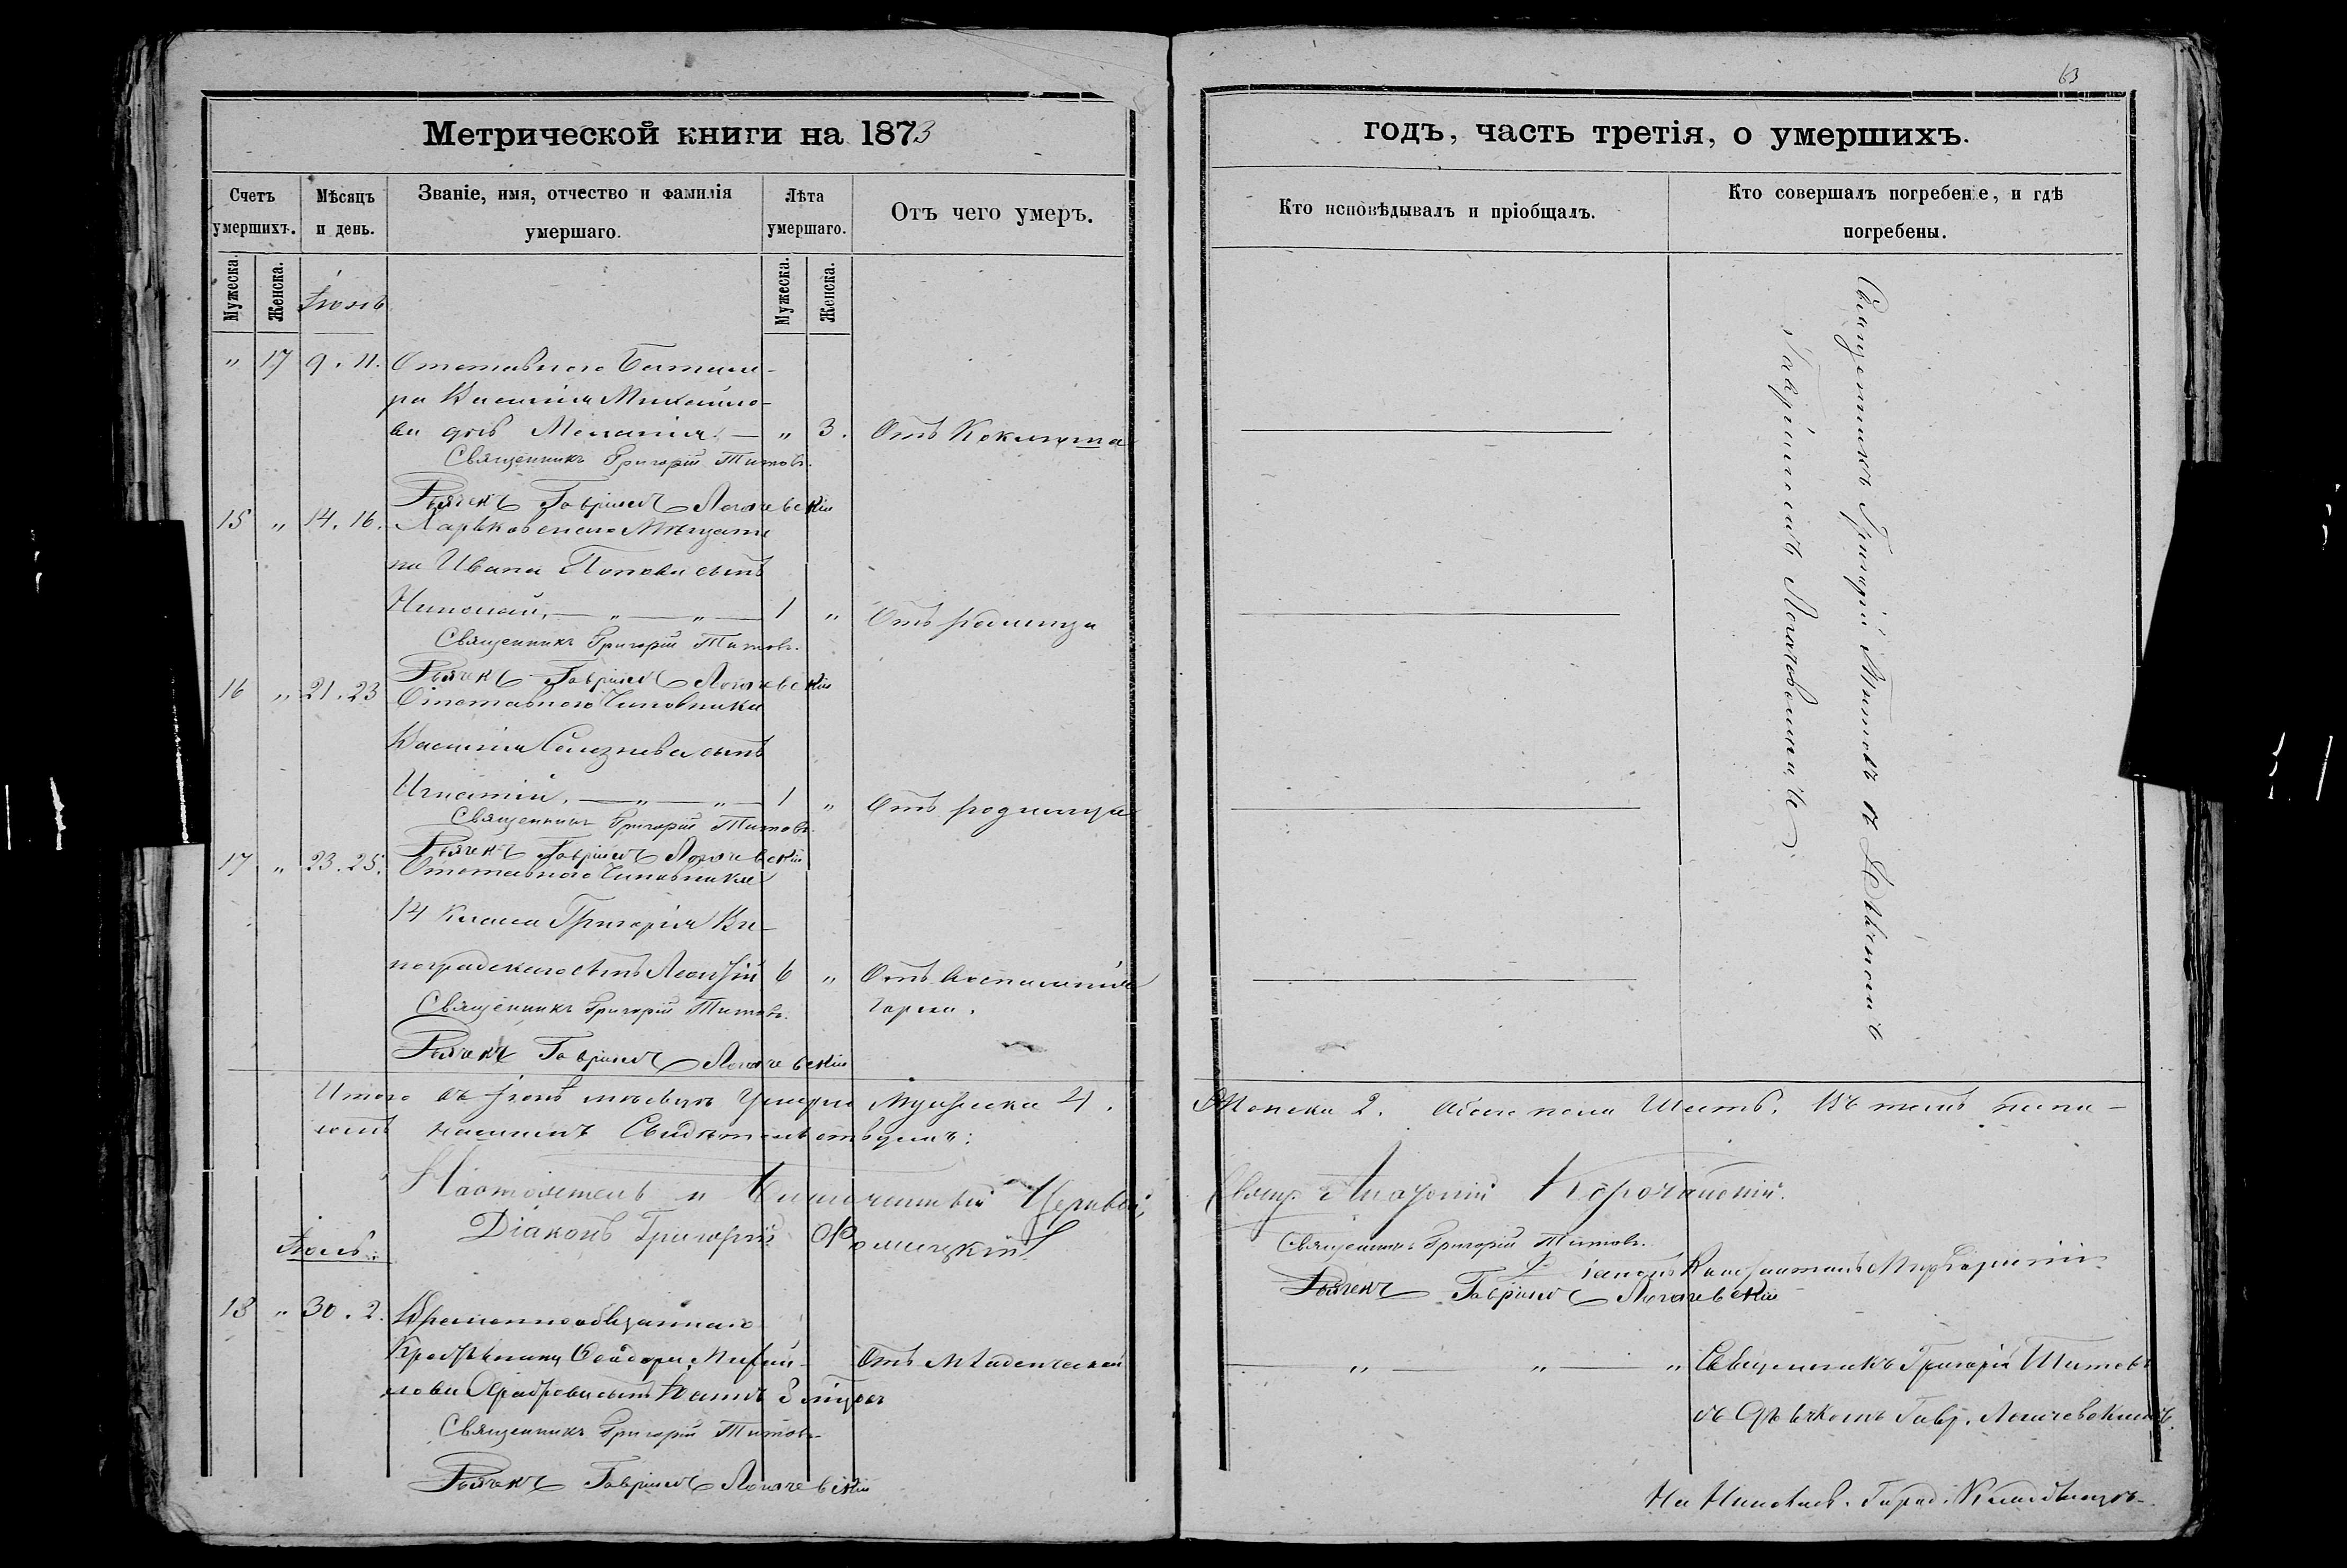 63
Метрической книги на 1873
годъ, часть третія, о умершихъ.
Счетъ умершихъ.
Мѣсяцъ и день.
Званіе, имя, отчество и фамилія умершаго.
Лѣта умершаго.
Отъ чего умеръ.
Кто исповѣдывалъ и пріобщалъ.
Кто совершалъ погребеніе, и гдѣ погребены.
Мужеска.
Женска.
Мужеска.
Женска.
Іюнь
" 17 9. 11. Отставнаго
ра Василія Михайло-
ва дочь Меланія — " 3. Отъ Коклюша
Священникъ Григорій Титовъ.
Дьячекъ Гавріилъ Логачевскій
15 " 14. 16. Харьковскаго Мѣщани
на Ивана Попова сынъ
Николай, — " — " — 1 " Отъ родимца
Священникъ Григорій Титовъ.
Дьячекъ Гавріилъ Логачевскій
16 " 21. 23 Отставнаго Чиновника
Василія Селезнева сынъ
Игнатій, — " — " — 1 " Отъ родимца
Священникъ Григорій Титовъ.
Дьячекъ Гавріилъ Логачевскій
17 " 23. 25. Отставнаго Чиновника
14 класса Григорія Ви-
ноградскаго сынъ Леонтій 6 " Отъ воспаленія
горла.
Священникъ Григорій Титовъ.
Дьячекъ Гавріилъ Логачевскій
Священникъ Григорій Титовъ съ
Гавріиломъ Логачевскимъ
Итого въ Іюнѣ мѣсяцѣ Умерло Мужеска 4. Женска 2. Обоего пола Шесть. Въ томъ
Свидѣтельствуемъ:
Настоятель Церкви, Свящ. Корочанскій.
Діаконъ Григорій
Священникъ Григорій Титовъ.
Дьячекъ Гавріилъ Логачевскій
Іюль.
18 " 30. 2. Временнообязаннаго
Крестьянина Ѳеодора Михай-
лова сынъ 3 Отъ Младенческой
Священникъ Григорій Титовъ
съ Дьячкомъ Гавр. Логачевскимъ.
Священникъ Григорій Титовъ
Дьячекъ Гавріилъ Логачевскій
На Город. Кладбищѣ.